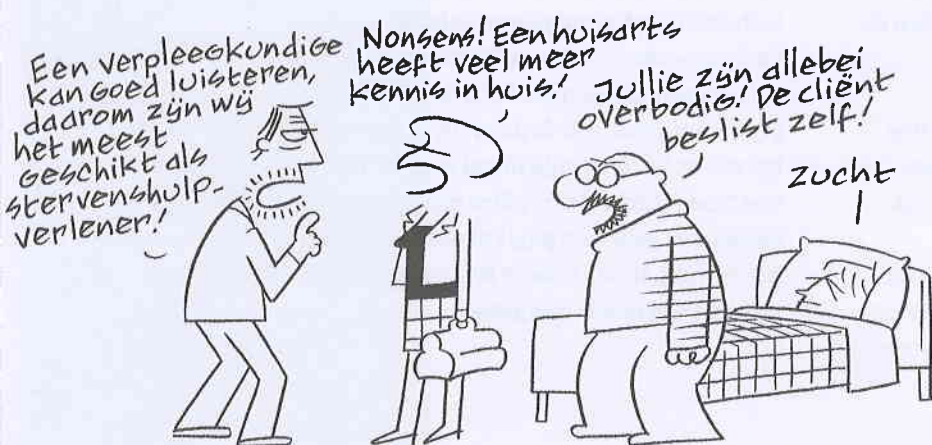 Een verpleegkundige
kan goed luisteren,
daarom zijn wij
het meest
geschikt als
stervenshulp-
verlener!
Nonsens! Een huisarts
heeft veel meer
kennis in huis!
Jullie zijn allebei
overbodig! De cliënt
beslist zelf!
zucht